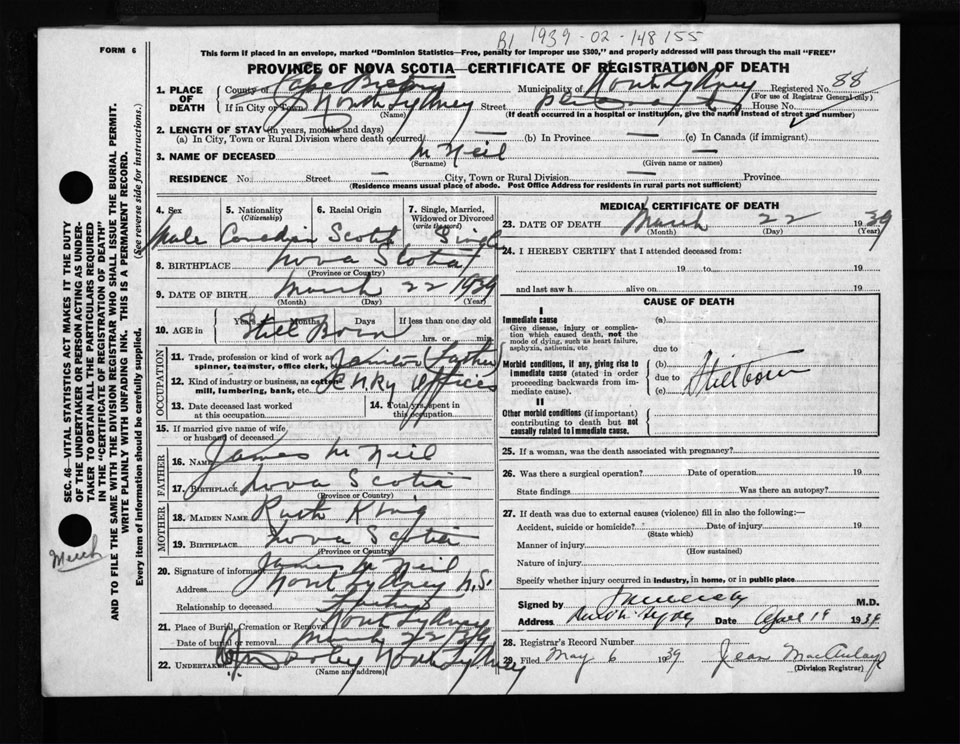 B1 1939-02-148155
FORM 6
This form if placed in an envelope, marked "Dominion Statistics—Free, penalty for improper use $300," and properly addressed will pass through the mail "FREE"
PROVINCE OF NOVA SCOTIA—CERTIFICATE OF REGISTRATION OF DEATH
1. PLACE OF DEATH
County of Cape Breton Municipality of North Sydney Registered No. 88
(For use of Registrar General only)
If in City or Town North Sydney Street House No.
(Name) (If death occurred in a hospital or institution, give the name instead of street and number)
2. LENGTH OF STAY (in years, months and days)
(a) In City, Town or Rural Division where death occurred — (b) In Province — (c) In Canada (if immigrant)
3. NAME OF DECEASED McNeil —
(Surname) (Given name or names)
RESIDENCE No. Street — City, Town or Rural Division — Province
(Residence means usual place of abode. Post Office Address for residents in rural parts not sufficient)
4. Sex
5. Nationality (Citizenship)
6. Racial Origin
7. Single, Married, Widowed or Divorced (write the word)
Male Canadian Scotch Single
8. BIRTHPLACE Nova Scotia
(Province or Country)
9. DATE OF BIRTH March 22 1939
(Month) (Day) (Year)
10. AGE in Years Months Days If less than one day old
Still Born hrs. or min.
OCCUPATION
11. Trade, profession or kind of work as spinner, teamster, office clerk, etc. Janitor (Father)
12. Kind of industry or business, as cotton mill, lumbering, bank, etc. C.N.Ry Offices
13. Date deceased last worked at this occupation
14. Total yrs. spent in this occupation
15. If married give name of wife, or husband of deceased
FATHER
16. NAME James McNeil
17. BIRTHPLACE Nova Scotia
(Province or Country)
MOTHER
18. MAIDEN NAME Ruth King
19. BIRTHPLACE Nova Scotia
(Province or Country)
20. Signature of informant James McNeil
Address North Sydney N.S.
Relationship to deceased Father
21. Place of Burial, Cremation or Removal North Sydney
Date of burial or removal March 22/39
22. UNDERTAKER North Sydney
(Name and address)
MEDICAL CERTIFICATE OF DEATH
23. DATE OF DEATH March 22 1939
(Month) (Day) (Year)
24. I HEREBY CERTIFY that I attended deceased from:
19 to 19
and last saw h alive on 19
CAUSE OF DEATH
I
Immediate cause (a)
Give disease, injury or complication which caused death, not the mode of dying, such as heart failure, asphyxia, asthenia, etc
due to
Morbid conditions, if any, giving rise to immediate cause (stated in order proceeding backwards from immediate cause).
(b)
due to Stillborn
(c)
II
Other morbid conditions (if important) contributing to death but not causally related to immediate cause.
25. If a woman, was the death associated with pregnancy?
26. Was there a surgical operation? Date of operation 19
State findings Was there an autopsy?
27. If death was due to external causes (violence) fill in also the following:—
Accident, suicide or homicide? Date of injury 19
(State which)
Manner of injury
(How sustained)
Nature of injury
Specify whether injury occurred in industry, in home, or in public place
Signed by M.D.
Address North Sydney Date April 19 1939
28. Registrar's Record Number
29. Filed May 6 1939 Jean MacAulay
(Division Registrar)
SEC. 46—VITAL STATISTICS ACT MAKES IT THE DUTY
OF THE UNDERTAKER OR PERSON ACTING AS UNDER-
TAKER TO OBTAIN ALL THE PARTICULARS REQUIRED
IN THE "CERTIFICATE OF REGISTRATION OF DEATH"
AND TO FILE THE SAME WITH THE DIVISION REGISTRAR WHO SHALL ISSUE THE BURIAL PERMIT.
WRITE PLAINLY WITH UNFADING INK. THIS IS A PERMANENT RECORD.
Every item of information should be carefully supplied. (See reverse side for instructions.)
March